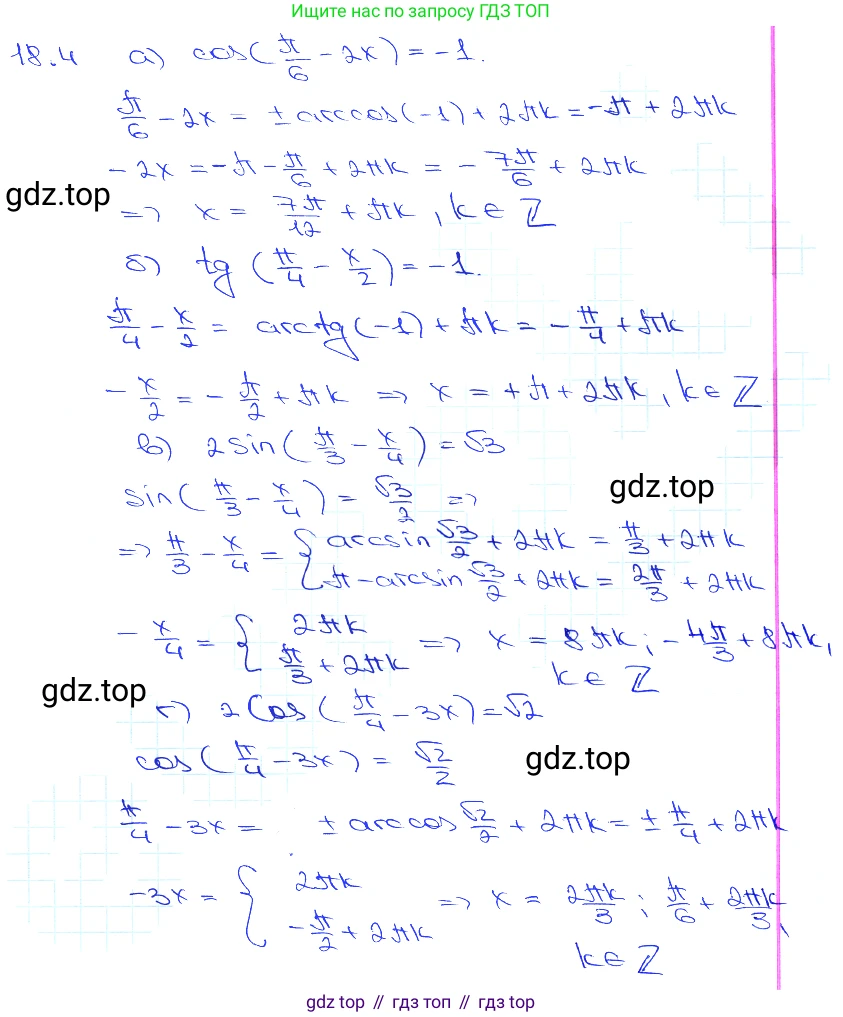 Ищите нас по запросу ГДЗ ТОП
18.4 а) cos(π/6 - 2x) = -1.
π/6 - 2x = ± arccos(-1) + 2πk = -π + 2πk
- 2x = -π - π/6 + 2πk = - 7π/6 + 2πk
gdz.top
=> x = 7π/12 + πk, k ∈ ℤ
б) tg (π/4 - x/2) = -1.
π/4 - x/2 = arctg(-1) + πk = - π/4 + πk
- x/2 = - π/2 + πk => x = +π + 2πk, k ∈ ℤ
в) 2 sin(π/3 - x/4) = √3
sin(π/3 - x/4) = √3/2 =>
gdz.top
=> π/3 - x/4 = { arcsin √3/2 + 2πk = π/3 + 2πk
π - arcsin √3/2 + 2πk = 2π/3 + 2πk
- x/4 = { 2πk => x = 8πk; - 4π/3 + 8πk,
π/3 + 2πk k ∈ ℤ
gdz.top
г) 2 cos(π/4 - 3x) = √2
cos(π/4 - 3x) = √2/2
gdz.top
π/4 - 3x = ± arccos √2/2 + 2πk = ± π/4 + 2πk
-3x = { 2πk => x = 2πk/3; π/6 + 2πk/3,
- π/2 + 2πk k ∈ ℤ
gdz top // гдз топ // gdz top